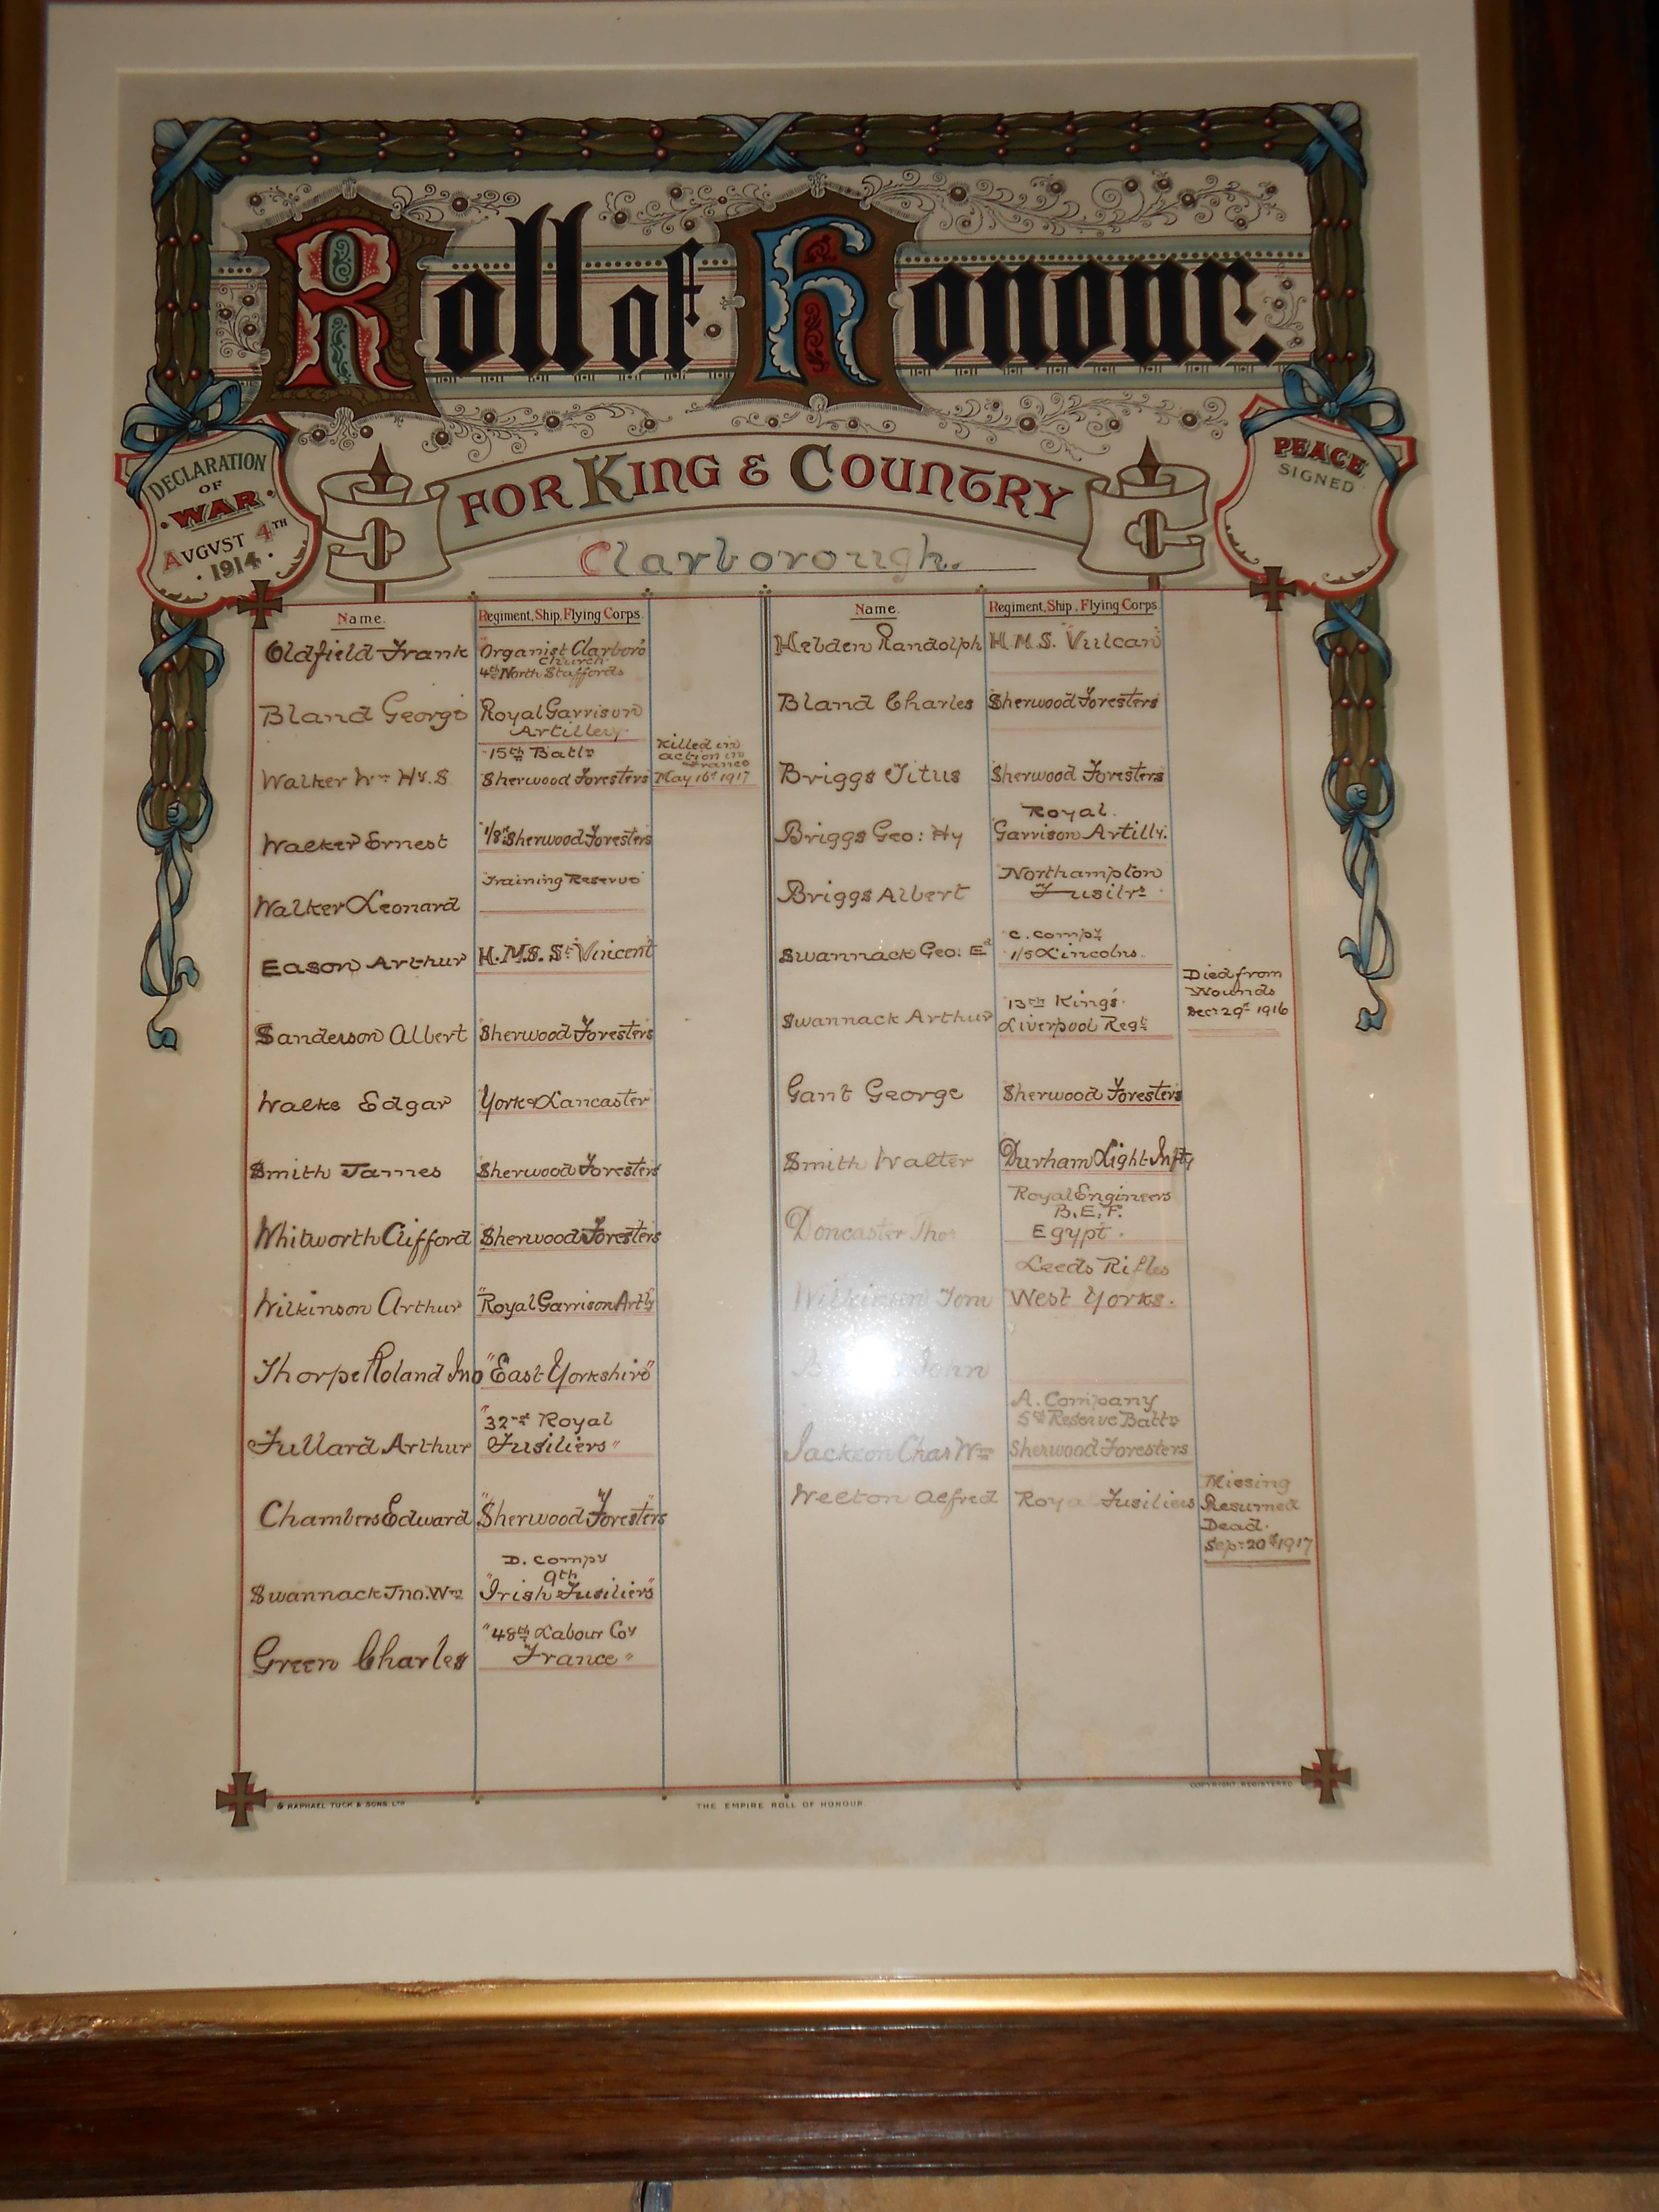 Roll of Honour.
FOR KING & COUNTRY
DECLARATION
OF
WAR.
AVGVST 4TH
1914.
PEACE
SIGNED
Clarborough.
Name.
Regiment, Ship, Flying Corps.
Oldfield Frank
"Organist Clarboro'
Church
4th North Staffords
Bland George
Royal Garrison
Artillery.
Walker Wm Hy. S
15th Batln
Sherwood Foresters
Killed in
action in
France
May 16th 1917
Walker Ernest
1/8th Sherwood Foresters
Walker Leonard
Training Reserve
Eason Arthur
H.M.S. St Vincent
Sanderson Albert
Sherwood Foresters
Walke Edgar
York & Lancaster
Smith James
Sherwood Foresters
Whitworth Clifford
Sherwood Foresters
Wilkinson Arthur
"Royal Garrison Arty"
Thorpe Roland Jno
"East Yorkshire"
Fullard Arthur
"32nd Royal
Fusiliers"
Chambers Edward
"Sherwood Foresters"
Swannack Jno. Wm
D. Compy
9th
"Irish Fusiliers"
Green Charles
"48th Labour Coy
France"
Name.
Regiment, Ship, Flying Corps.
Hebden Randolph
H.M.S. "Vulcan"
Bland Charles
Sherwood Foresters
Briggs Titus
Sherwood Foresters
Briggs Geo: Hy
Royal.
Garrison Artilly.
Briggs Albert
Northampton
Fusilrs
Swannack Geo: Ed
C. Compy
1/5 Lincolns.
Swannack Arthur
13th King's
Liverpool Regt
Died from
Wounds
Decr 29th 1916
Gant George
Sherwood Foresters
Smith Walter
Durham Light Infty
Doncaster Thos
Royal Engineers
B.E.F.
Egypt.
Wilkinson Tom
Leeds Rifles
West Yorks.
John
Jackson Chas Wm
A. Company
5th Reserve Battn
Sherwood Foresters
Welton Alfred
Royal Fusiliers
Missing
Resumed
Dead.
Sep: 20th 1917
© RAPHAEL TUCK & SONS. LTD
THE EMPIRE ROLL OF HONOUR.
COPYRIGHT, REGISTERED